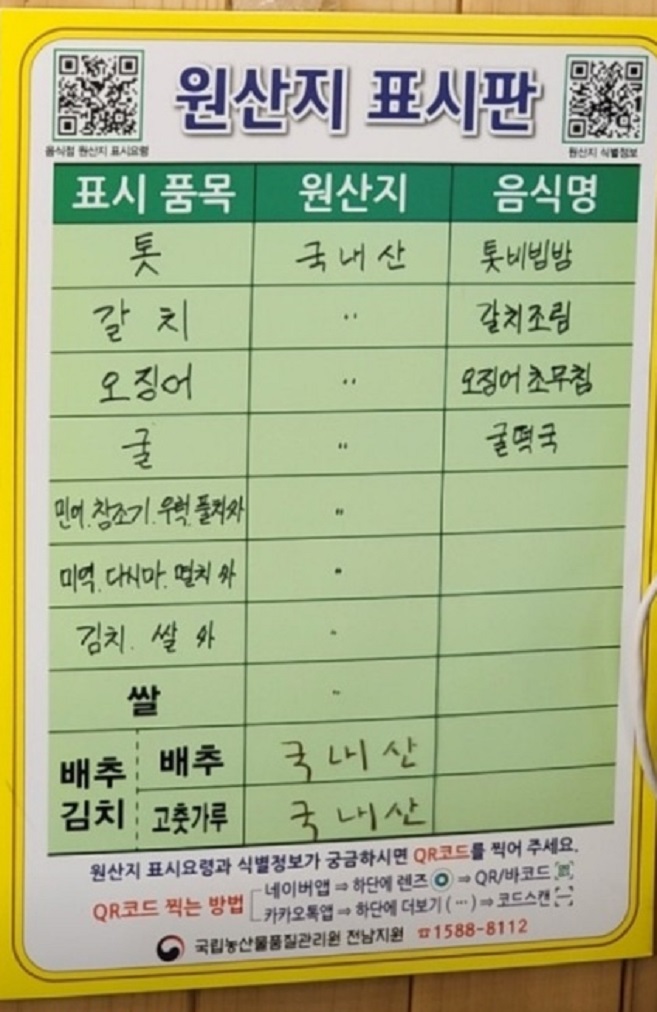 원산지 표시판
음식점 원산지 표시요령
원산지 식별정보
표시 품목 원산지 음식명
톳 국내산 톳비빔밥
갈치 〃 갈치조림
오징어 〃 오징어초무침
굴 〃 굴떡국
민어.참조기.우럭.풀치와 〃
미역.다시마.멸치와 〃
김치.쌀와 〃
쌀 〃
배추김치 배추 국내산
고춧가루 국내산
원산지 표시요령과 식별정보가 궁금하시면 QR코드를 찍어 주세요.
QR코드 찍는 방법
네이버앱 ⇒ 하단에 렌즈 ⇒ QR/바코드
카카오톡앱 ⇒ 하단에 더보기(···) ⇒ 코드스캔
국립농산물품질관리원 전남지원 ☎1588-8112